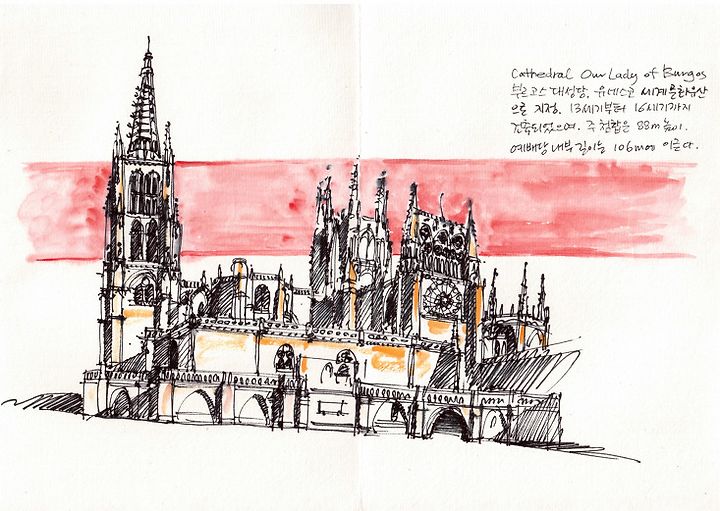 Cathedral Our Lady of Burgos
부르고스 대성당, 유네스코 세계문화유산
으로 지정. 13세기부터 16세기까지
건축되었으며. 주 첨탑은 88m 높이.
예배당 내부 길이는 106m에 이른다.